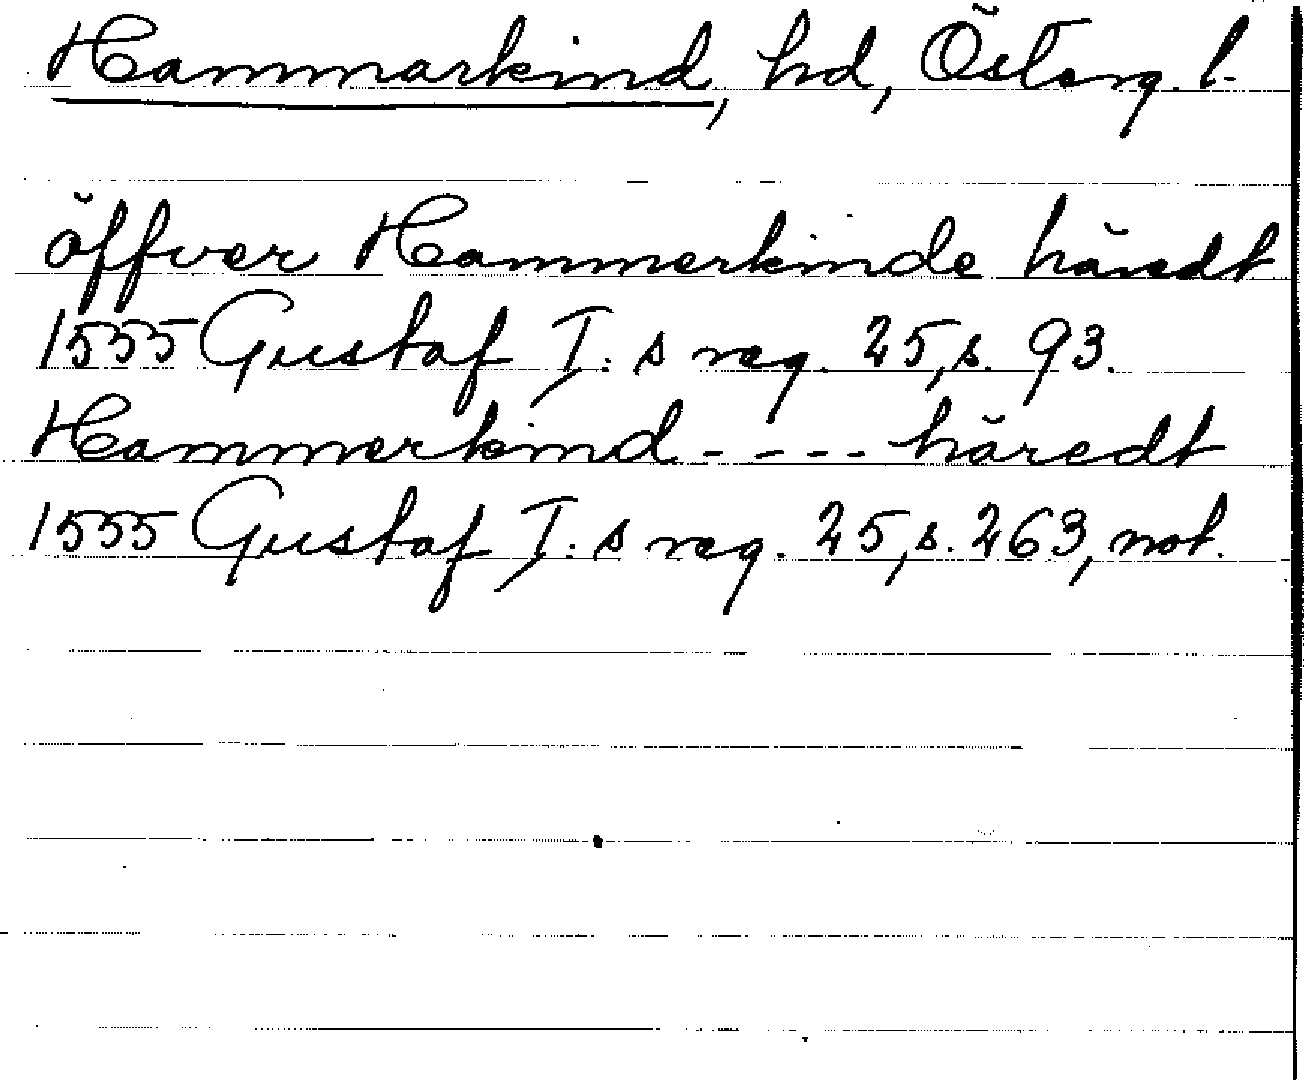 Hammarkind, hd, Österg. l.
öffver Hammerkinde häredt
1555 Gustaf I:s reg. 25, s. 93.
Hammerkind - - - - häredt
1555 Gustaf I:s reg. 25, s. 263, not.